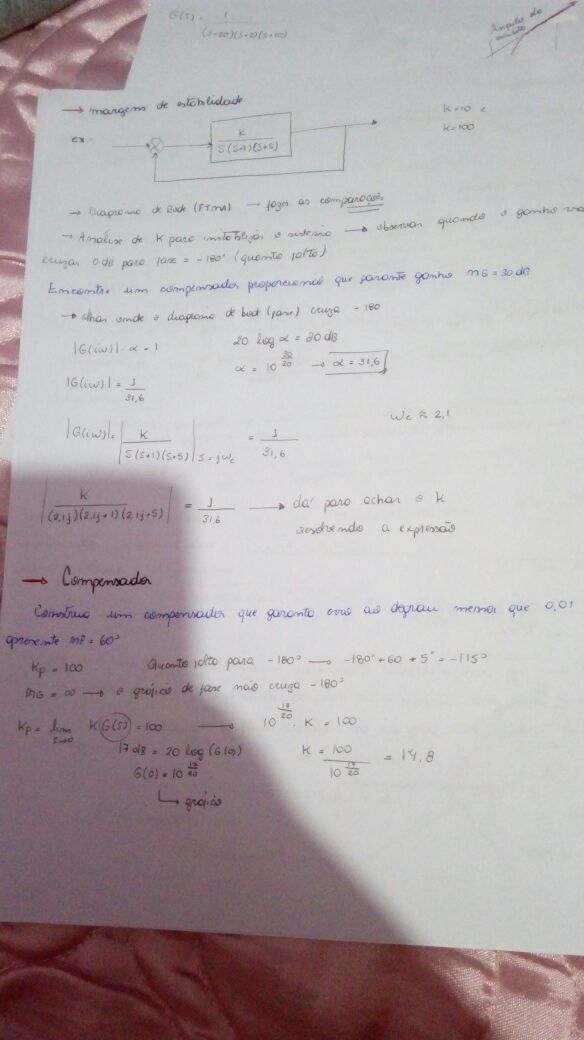 G(s) = 1 / (s-20)(s+2)(s+10)
Angulo de
→ margem de estabilidade
K=10 e
K=100
ex.
K / S(S+1)(S+5)
→ Diagrama de Bode (FTMA) → fazer as comparações
→ Análise de K para instabilizar o sistema → observar quando o ganho vai
cruzar 0 dB para fase = -180° (quanto falta)
Encontre um compensador proporcional que garante ganho MG = 30 dB
→ olhar onde o diagrama de bode (fase) cruza -180
|G(iω)|·α = 1    20 log α = 30 dB
|G(iω)| = 1/31,6    α = 10^(30/20) → α = 31,6
ωc ≈ 2,1
|G(iω)| = |K / S(S+1)(S+5)| s=jωc = 1/31,6
|K / (2,1j)(2,1j+1)(2,1j+5)| = 1/31,6 → dá para achar o K
resolvendo a expressão
→ Compensador
Construa um compensador que garanta erro ao degrau menor que 0,01
apresente MF = 60°
Kp = 100    Quanto falta para -180° → -180° + 60 + 5° = -115°
MG = ∞ → o gráfico de fase não cruza -180°
Kp = lim s→0 K G(S) = 100 → 10^(17/20) · K = 100
17 dB = 20 log (G(0))    K = 100 / 10^(17/20) = 14,8
G(0) = 10^(17/20)
↳ gráfico